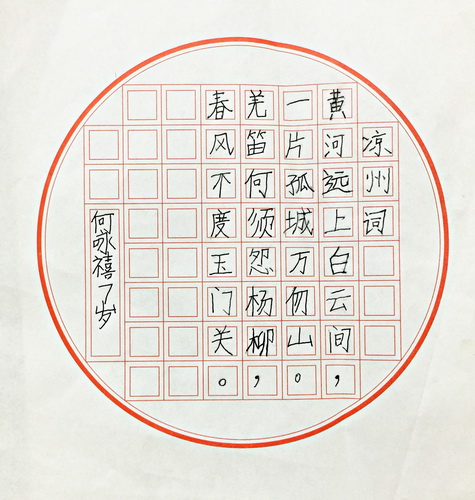 凉州词
黄河远上白云间，
一片孤城万仞山。
羌笛何须怨杨柳，
春风不度玉门关。
何禧7岁